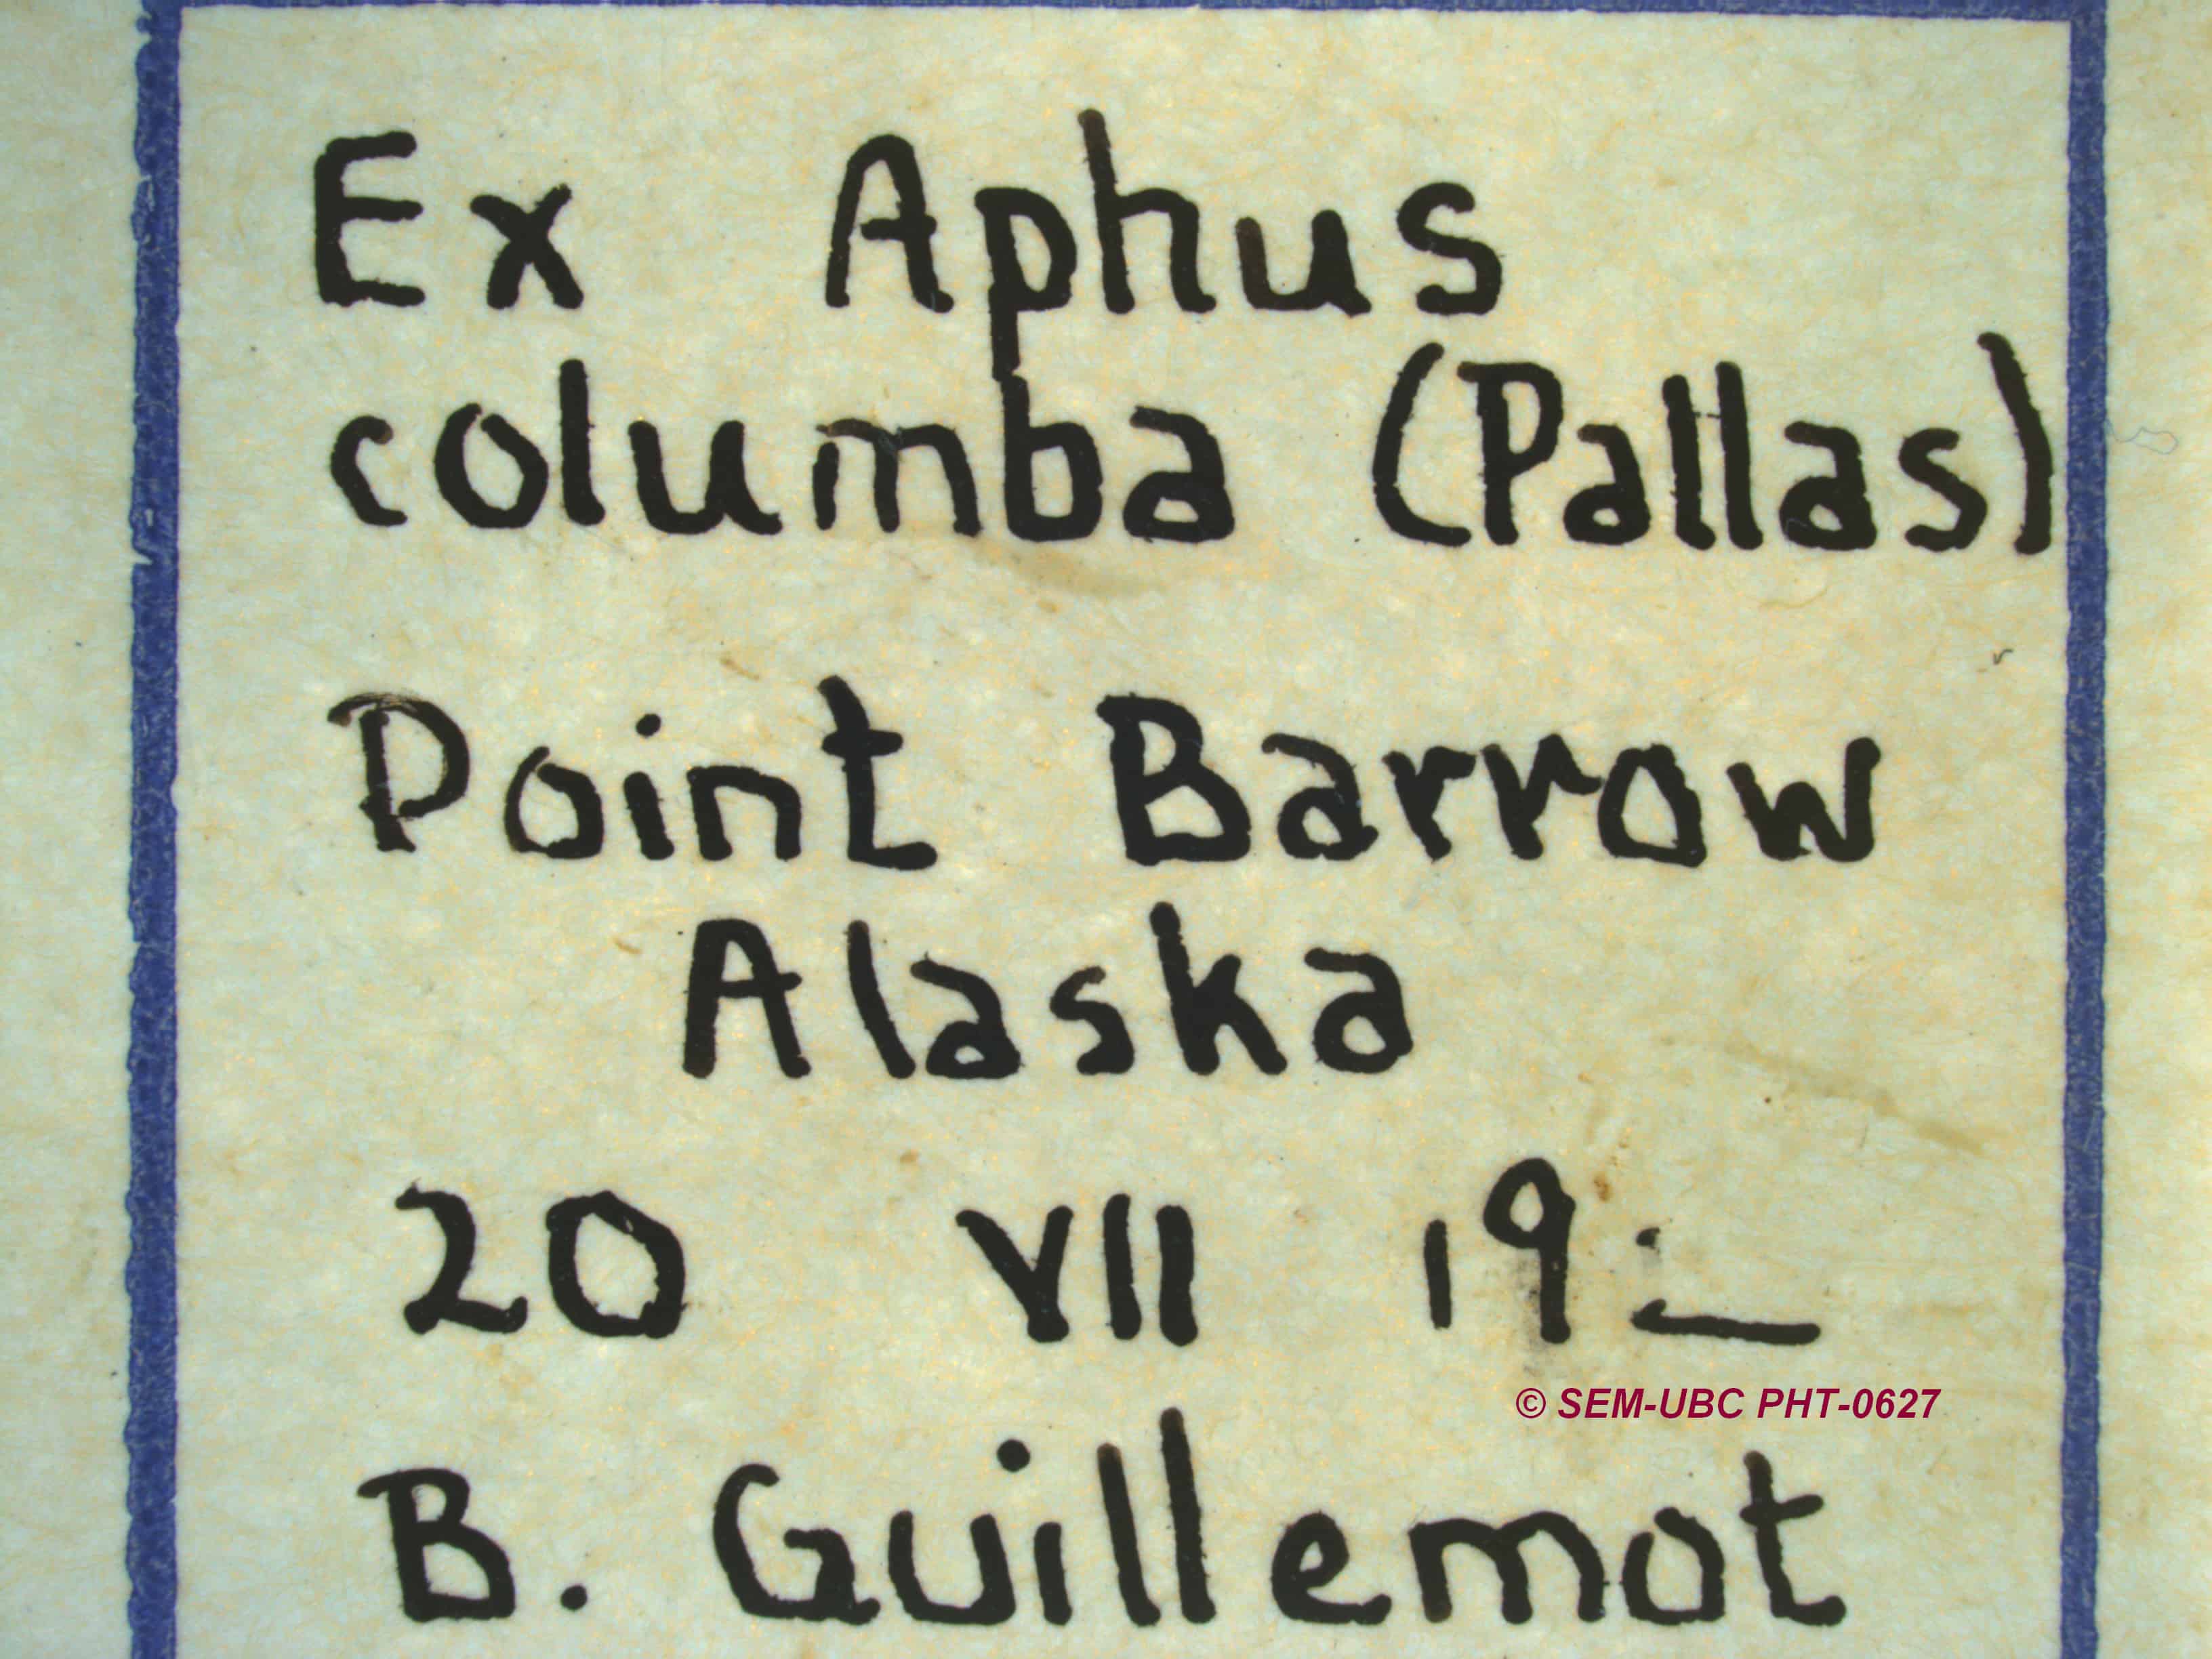 Ex Aphus
columba (Pallas)
Point Barrow
Alaska
20 VII 19:_
© SEM-UBC PHT-0627
B. Guillemot